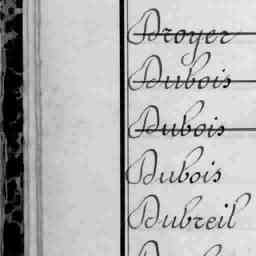 Droyer
Dubois
Dubois
Dubois
Dubreil